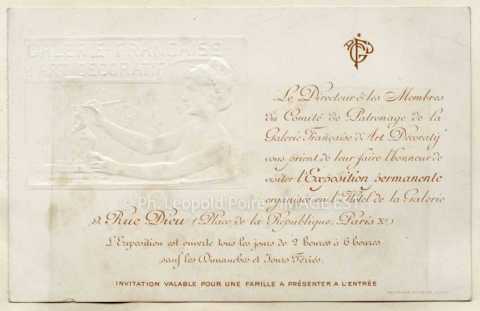 GALERIE FRANÇAISE
ART DECORATIF
Le Directeur & les Membres
du Comité de Patronage de la
Galerie Française d'Art Décoratif
vous prient de leur faire l'honneur de
visiter l'Exposition permanente
organisée en l'Hôtel de la Galerie
Rue Dieu (Place de la République, Paris Xe)
L'Exposition est ouverte tous les jours de 2 heures à 6 heures
sauf les Dimanches et Jours Fériés.
INVITATION VALABLE POUR UNE FAMILLE A PRÉSENTER A L'ENTRÉE
© Ph. Leopold Poiré